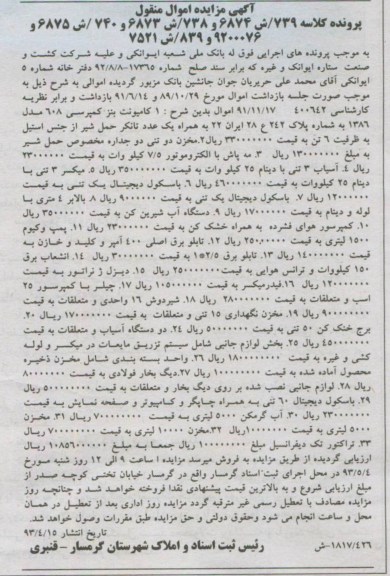 آگهی مزایده اموال منقول
پرونده کلاسه ۷۳۹/ش ۶۸۷۴ و ۷۳۸/ش ۶۸۷۳ و ۷۴۰/ش ۶۸۷۵ و
۹۲۰۰۰۷۶ و ۸۳۹/ش ۷۵۲۱
به موجب پرونده های اجرایی فوق له بانک ملی شعبه ایوانکی و علیه شرکت کشت و
صنعت ستاره ایوانک و غیره که برابر سند صلح شماره ۱۷۳۶۵-۹۲/۸/۸ دفتر خانه شماره ۵
ایوانکی آقای محمد علی حریریان جوان جانشین بانک مزبور گردیده اموالی به شرح ذیل به
موجب صورت جلسه بازداشت اموال مورخ ۸۹/۱۰/۲۹ و ۹۱/۶/۱۴ بازداشت و برابر نظریه
کارشناسی ۴۰۰۶۴۲ ۹۱/۱۱/۱۷ اموال بدین شرح : ۱ کامیونت بنز- کمپرسی ۶۰۸ مدل
۱۳۸۶ به شماره پلاک ۲۴۲ ع ۲۸ ایران ۲۲ به همراه یک عدد تانکر حمل شیر از جنس استیل
به ظرفیت ۶ تن به قیمت ۳۳۰۰۰۰۰۰۰ ریال۲. مخزن دو تنی دو جداره مخصوص حمل شیر
به مبلغ ۱۳۰۰۰۰۰۰۰ ریال ۳. مه پاش با الکتروموتور ۷/۵ کیلو وات به قیمت ۲۳۰۰۰۰۰۰
ریال ۴. آسیاب ۳ تنی با دینام ۲۵ کیلو وات به قیمت ۳۵۰۰۰۰۰۰ ریال ۵. میکسر ۳ تنی با
دینام ۲۵ کیلووات به قیمت ۴۶۰۰۰۰۰۰ ریال ۶. باسکول دیجیتال یک تنی به قیمت
۱۲۰۰۰۰۰۰ ریال ۷. باسکول دیجیتال یک تنی به قیمت ۹۰۰۰۰۰۰ ریال ۸. بالابر ۴ متری با
لوله و دینام به قیمت ۱۷۰۰۰۰۰۰ ریال ۹. دستگاه آب شیرین کن به قیمت ۳۵۰۰۰۰۰۰ ریال
۱۰. کمپرسور هوای فشرده به همراه خشک کن به قیمت ۲۳۰۰۰۰۰۰ ریال ۱۱. پمپ وکیوم
۱۵۰۰ لیتری به قیمت ۲۵۰۰۰۰۰۰ ریال ۱۲. تابلو برق اصلی ۴۰۰ آمپر و کلید و خازن به
قیمت ۱۴۰۰۰۰۰۰۰ ریال ۱۳. تابلو برق به قیمت ۳۰۰۰۰۰۰۰ ریال ۱۴. انشعاب برق
۱۵۰ کیلووات و ترانس هوایی به قیمت ۲۵۰۰۰۰۰۰۰ ریال ۱۵. دیزل ژنراتور به قیمت
۱۲۰۰۰۰۰۰۰ ریال ۱۶. فیدرمیکسر به قیمت ۱۰۵۰۰۰۰۰۰ ریال ۱۷. چیلر با کمپرسور ۲۵
اسب و متعلقات به قیمت ۲۸۰۰۰۰۰۰۰ ریال ۱۸. شیردوش ۱۶ واحدی و متعلقات به قیمت
۹۰۰۰۰۰۰۰۰ ریال ۱۹. مخزن نگهداری ۱۵ تنی و متعلقات به قیمت ۱۷۰۰۰۰۰۰۰ ریال ۲۰.
برج خنک کن ۵۰ تنی به قیمت ۵۰۰۰۰۰۰۰ ریال ۲۴. دو دستگاه آسیاب و متعلقات به قیمت
۴۵۰۰۰۰۰۰۰ ریال ۲۵. بخش لوازم جانبی شامل سیستم تزریق مایعات در میکسر و لوله
کشی و غیره به قیمت ۱۸۰۰۰۰۰۰۰ ریال ۲۶. واحد بسته بندی شامل مخزن ذخیره
محصول آماده شده به قیمت ۱۰۰۰۰۰۰۰۰ ریال ۲۷. دیگ بخار فولادی به قیمت ۸۰۰۰۰۰۰۰
ریال ۲۸. لوازم جانبی نصب شده بر روی دیگ بخار و متعلقات به قیمت ۵۰۰۰۰۰۰۰ ریال
۲۹. باسکول دیجیتال ۶۰ تنی به همراه چاپگر و کامپیوتر و صفحه نمایش به قیمت
۲۳۰۰۰۰۰۰۰ ریال ۳۰. آب گرمکن ۵۰۰۰ لیتری به قیمت ۷۰۰۰۰۰۰۰ ریال ۳۱. مخزن
۵۰۰۰ لیتری به قیمت ۱۰۰۰۰۰۰۰ ریال ۳۲. مخزن ۱۰۰۰۰ لیتری به قیمت ۷۰۰۰۰۰۰۰ ریال
۳۳. تراکتور تک دیفرانسیل مبلغ ۱۰۰۰۰۰۰۰۰ ریال جمعا به مبلغ ریال
ارزیابی گردیده از طریق مزایده به فروش میرسد مزایده از ساعت ۹ الی ۱۲ روز شنبه مورخ
۹۳/۵/۴ در محل اجرای ثبت اسناد گرمسار واقع در گرمسار خیابان تختی کوچه صدر از
مبلغ ارزیابی شروع و به بالاترین قیمت پیشنهادی نقدا فروخته خواهد شد و چنانچه روز
مزایده مصادف با تعطیل رسمی غیر مترقبه گردد مزایده روز اداری بعد از تعطیل در همان
محل و ساعت انجام می شود وحقوق دولتی و حق مزایده طبق مقررات وصول خواهد شد.
تاریخ انتشار ۹۳/۴/۱۵
۱۸۱۷/۴۲۶-ش رئیس ثبت اسناد و املاک شهرستان گرمسار - قنبری